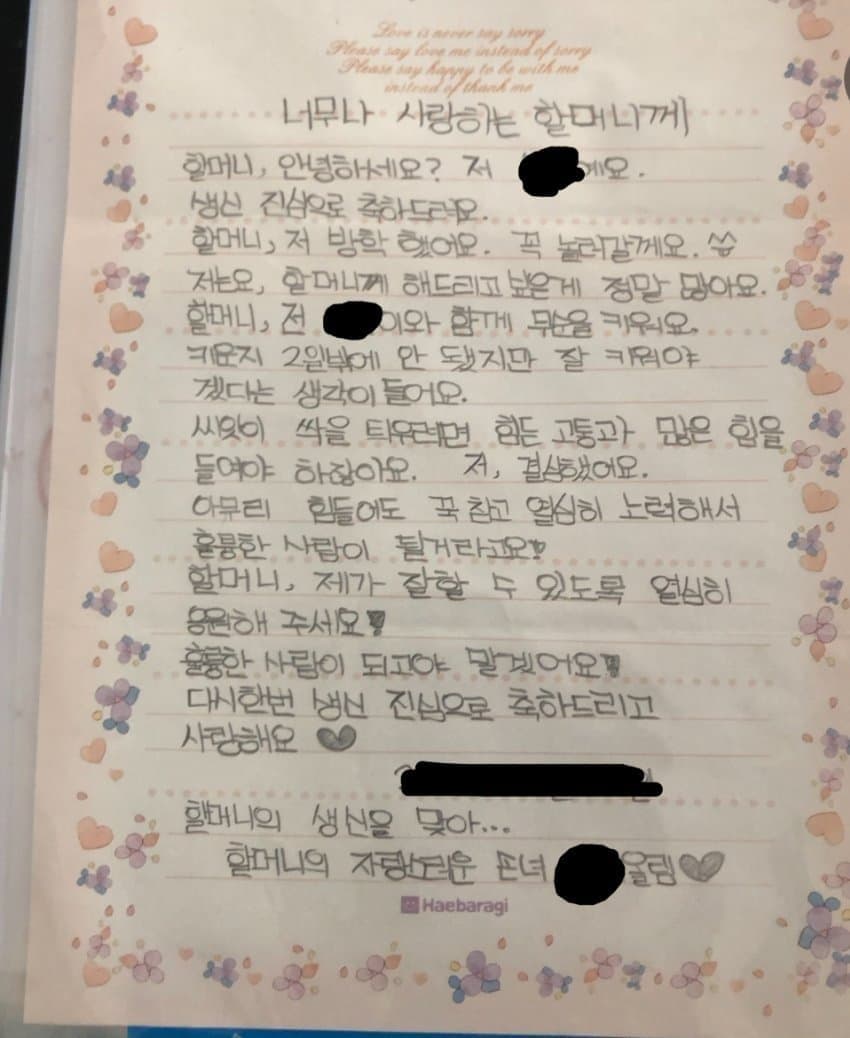 Love is never say sorry
Please say love me instead of sorry
Please say happy to be with me
instead of thank me
너무나 사랑하는 할머니께
할머니, 안녕하세요? 저 예요.
생신 진심으로 축하드려요.
할머니, 저 방학 했어요. 꼭 놀러갈께요.
저는요, 할머니께 해드리고 싶은게 정말 많아요.
할머니, 전 이와 함께 무순을 키워요.
키운지 2일밖에 안 됐지만 잘 키워야
겠다는 생각이 들어요.
씨앗이 싹을 틔우려면 힘든 고통과 많은 힘을
들여야 하잖아요. 저, 결심했어요.
아무리 힘들어도 꾹 참고 열심히 노력해서
훌륭한 사람이 될거라고요!
할머니, 제가 잘할 수 있도록 열심히
응원해 주세요!
훌륭한 사람이 되고야 말겠어요!
다시한번 생신 진심으로 축하드리고
사랑해요 ♥
할머니의 생신을 맞아...
할머니의 자랑스러운 손녀 올림♥
Haebaragi